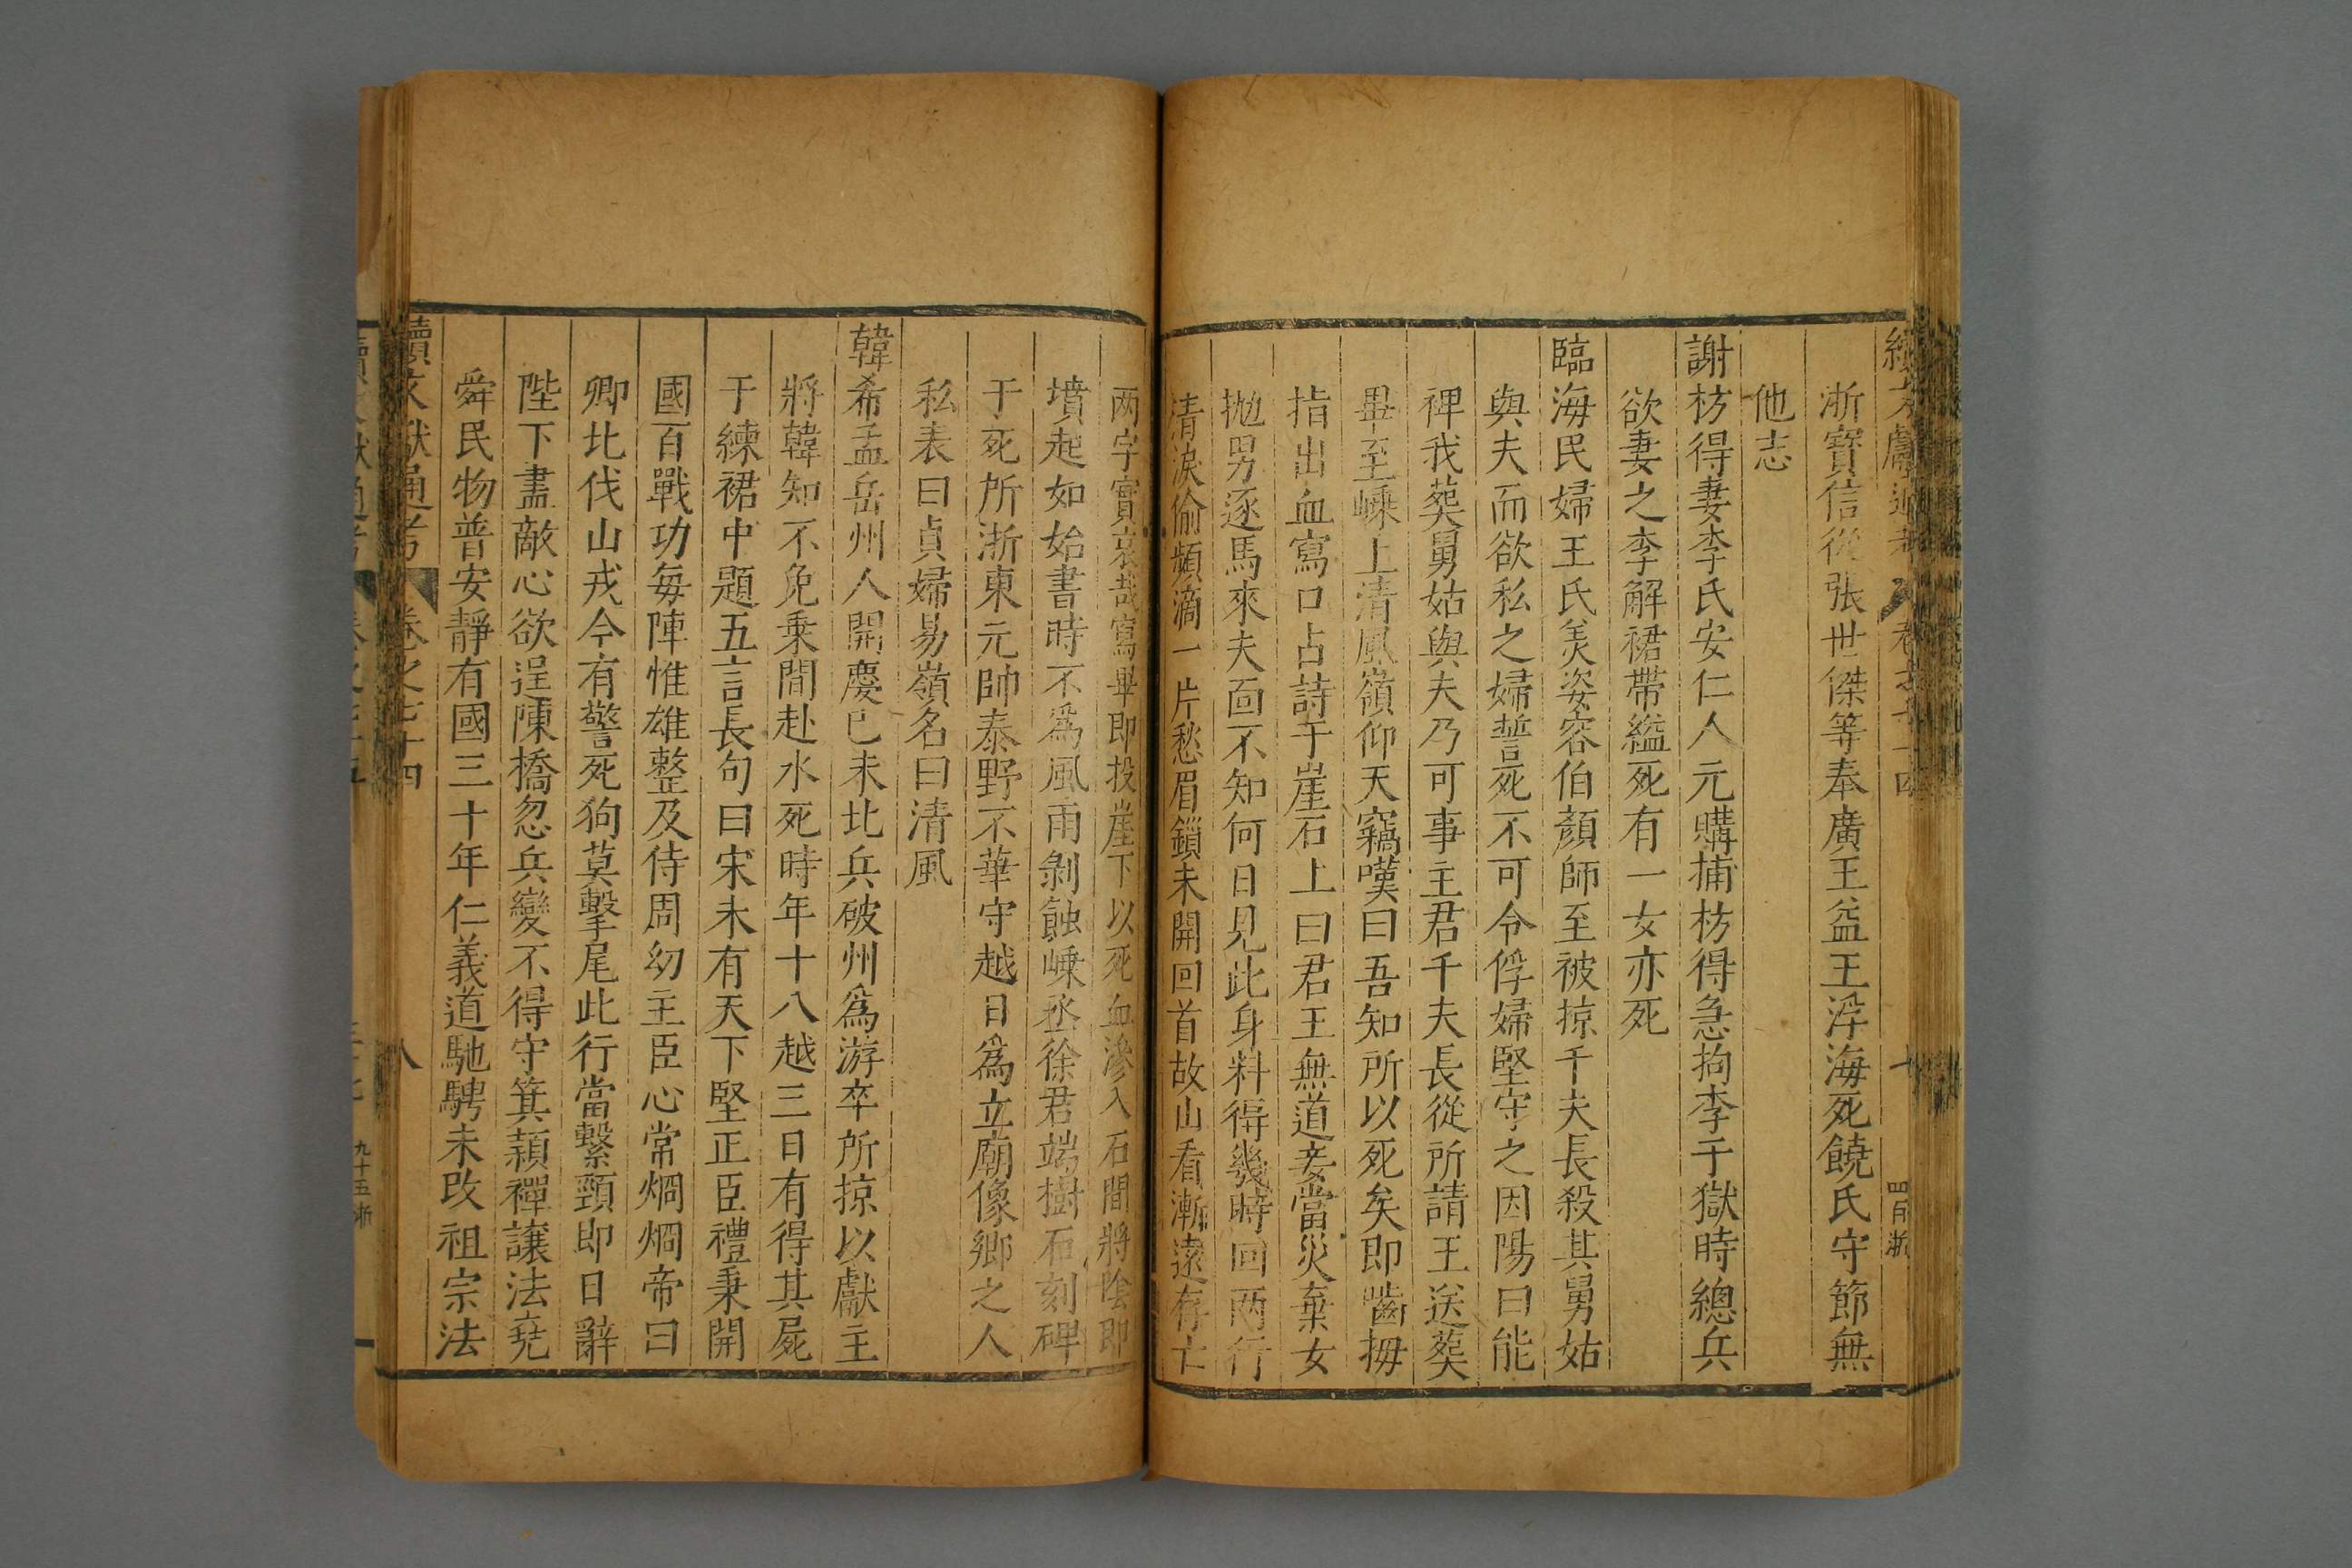 續文獻通考 卷之七十四 十
浙寳信從張世傑等奉廣王益王浮海死饒氏守節無
他志
謝枋得妻李氏安仁人元購捕枋得急拘李于獄時總兵
欲妻之李解裙帶縊死有一女亦死
臨海民婦王氏美姿容伯顏師至被掠千夫長殺其舅姑
與夫而欲私之婦誓死不可令俘婦堅守之因陽曰能
裨我葬舅姑與夫乃可事主君千夫長從所請王送葬
畢至嵊上清風嶺仰天竊嘆曰吾知所以死矣即嚙拇
指出血寫口占詩于崖石上曰君王無道妾當災棄女
抛男逐馬來夫面不知何日見此身料得幾時回两行
清淚偷頻滴一片愁眉鎖未開回首故山看漸遠存亡
两字實哀哉寫畢即投崖下以死血滲入石間將陰即
墳起如始書時不爲風雨剝蝕嵊丞徐君端樹石刻碑
于死所浙東元帥泰野不華守越日爲立廟像鄉之人
私表曰貞婦易嶺名曰清風
韓希孟岳州人開慶已未北兵破州爲游卒所掠以獻主
將韓知不免乗間赴水死時年十八越三日有得其屍
于練裙中題五言長句曰宋未有天下堅正臣禮秉開
國百戰功每陣惟雄整及侍周幼主臣心常烱烱帝曰
卿北伐山戎今有警死狗莫擊尾此行當繫頸即日辭
陛下盡敵心欲逞陳橋忽兵變不得守箕頴禪讓法堯
舜民物普安靜有國三十年仁義道馳騁未改祖宗法
續文獻通考 卷之七十四 八
九十五浙